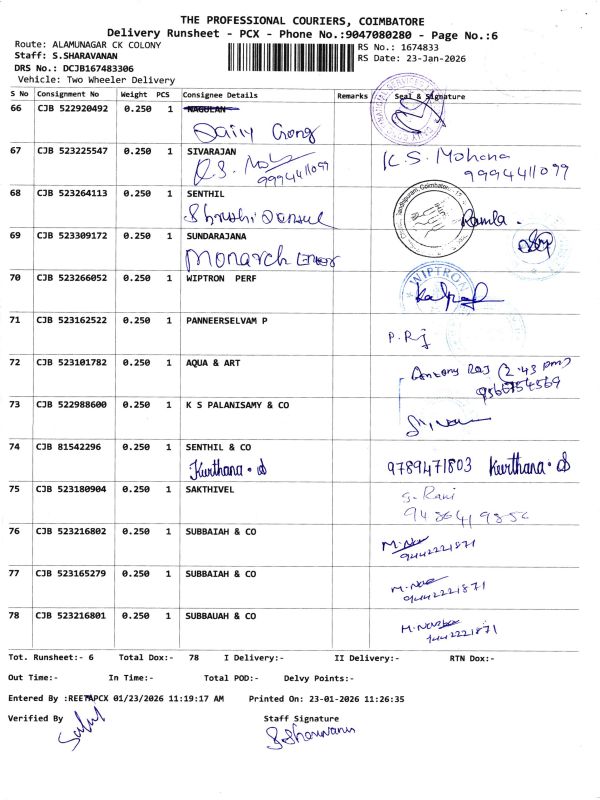 THE PROFESSIONAL COURIERS, COIMBATORE
Delivery Runsheet - PCX - Phone No.:9047080280 - Page No.:6
Route: ALAMUNAGAR CK COLONY
RS No.: 1674833
Staff: S.SHARAVANAN
RS Date: 23-Jan-2026
DRS No.: DCJB167483306
Vehicle: Two Wheeler Delivery
S No Consignment No Weight PCS Consignee Details Remarks Seal & Signature
66 CJB 522920492 0.250 1 NAGULAN
67 CJB 523225547 0.250 1 SIVARAJAN
9994411099
K.S. Mohana
9994411099
68 CJB 523264113 0.250 1 SENTHIL
Ramla.
69 CJB 523309172 0.250 1 SUNDARAJANA
Monarch
70 CJB 523266052 0.250 1 WIPTRON PERF
WIPTRON
71 CJB 523162522 0.250 1 PANNEERSELVAM P
P. Rj
72 CJB 523101782 0.250 1 AQUA & ART
Antony Raj (2.43 pm)
73 CJB 522988600 0.250 1 K S PALANISAMY & CO
74 CJB 81542296 0.250 1 SENTHIL & CO
Kurthana.S 9789471803 Kurthana.S
75 CJB 523180904 0.250 1 SAKTHIVEL
S. Rani
76 CJB 523216802 0.250 1 SUBBAIAH & CO
9442221871
77 CJB 523165279 0.250 1 SUBBAIAH & CO
9442221871
78 CJB 523216801 0.250 1 SUBBAUAH & CO
9442221871
Tot. Runsheet:- 6 Total Dox:- 78 I Delivery:- II Delivery:- RTN Dox:-
Out Time:- In Time:- Total POD:- Delvy Points:-
Entered By :REETAPCX 01/23/2026 11:19:17 AM Printed On: 23-01-2026 11:26:35
Verified By Staff Signature